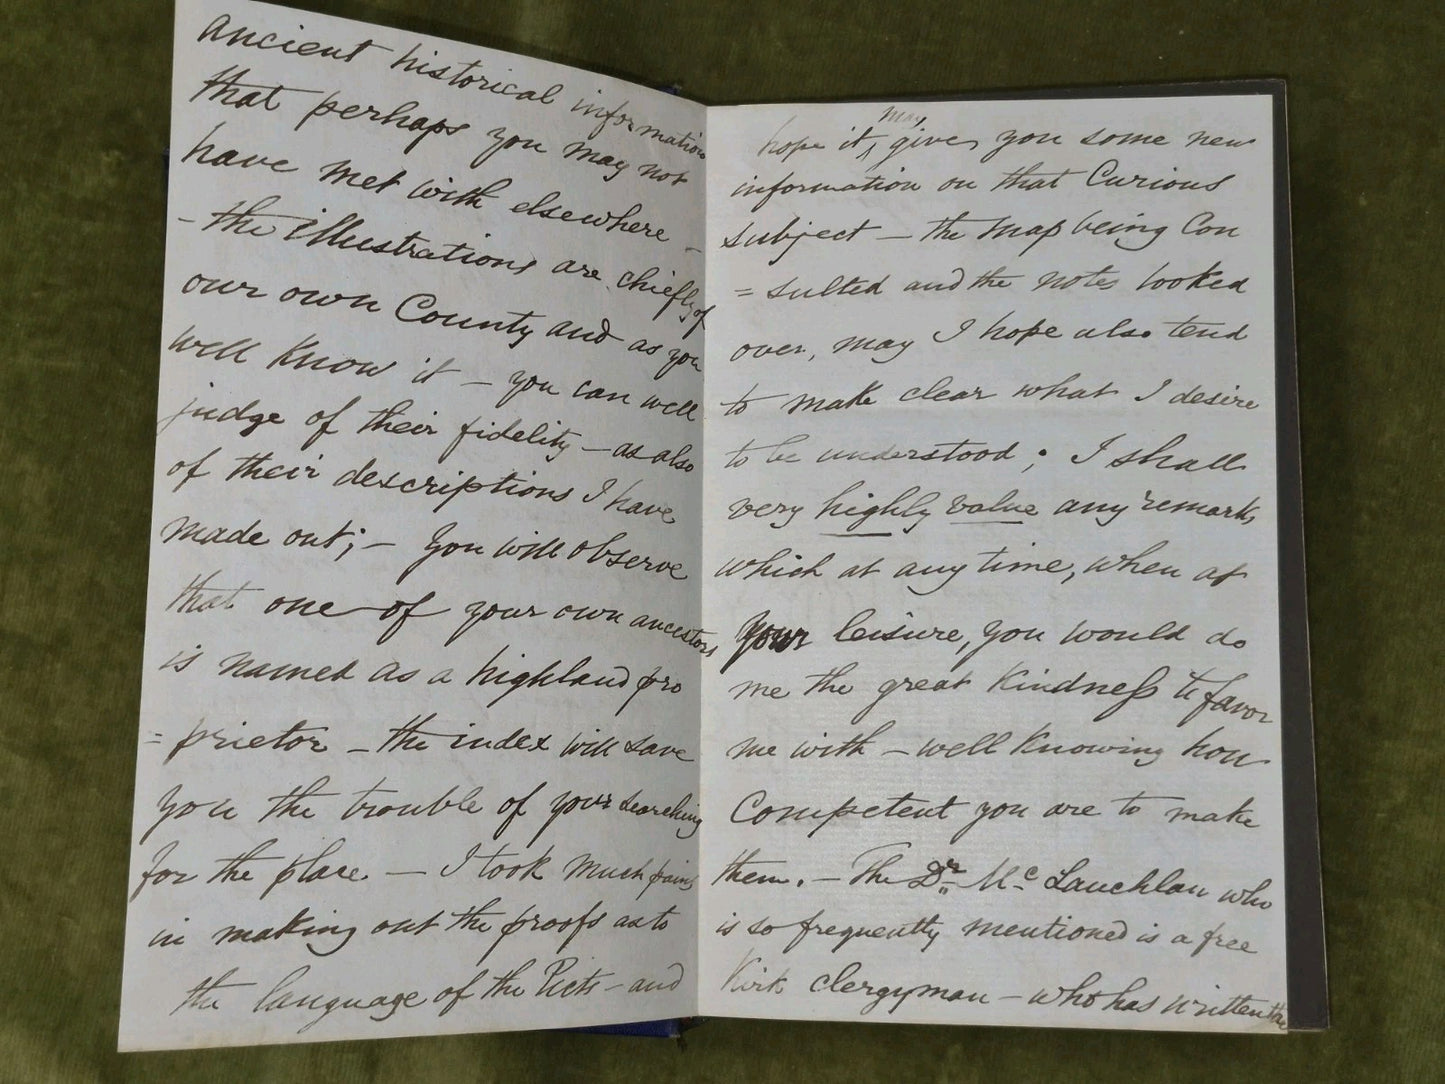 ancient historical information
that perhaps you may not
have met with elsewhere –
– the illustrations are chiefly of
our own County and as you
well know it – you can well
judge of their fidelity – as also
of their descriptions I have
made out; – you will observe
that one of your own ancestors
is named as a highland pro
= prietor – the index will save
you the trouble of your searching
for the place – I took much pains
in making out the proofs as to
the language of the Picts – and
may
hope it, gives you some new
information on that Curious
subject – the map being Con
= sulted and the notes looked
over, may I hope also tend
to make clear what I desire
to be understood; I shall
very highly value any remarks
which at any time, when at
your leisure, you would do
me the great Kindness to favor
me with – well Knowing how
Competent you are to make
them. – The Dr. Mc Lauchlan who
is so frequently mentioned is a free
Kirk clergyman – who has written the